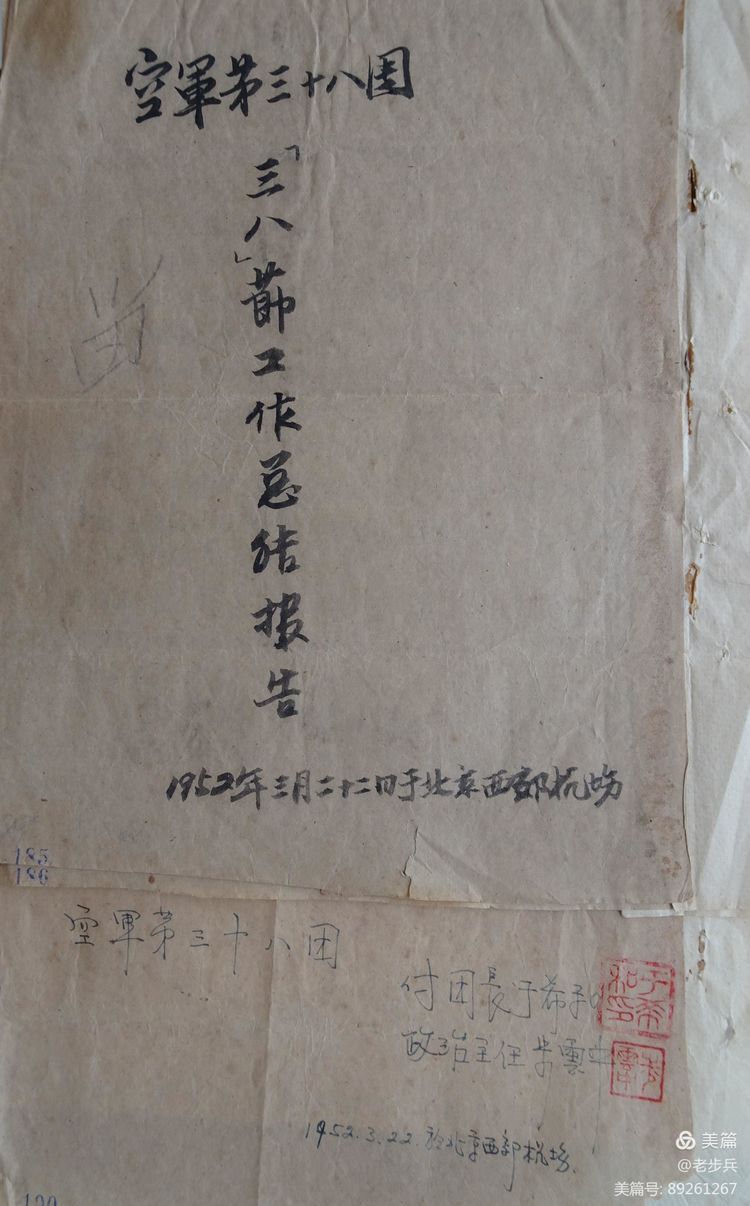 空軍第三十八团
「三八」節工作总结报告
1952年三月二十二日于北京西郊机场
185
186
空軍第三十八团
付团長于希和
政治主任步雲中
于希和印
步雲中
1952.3.22.於北京西郊机場.
190
美篇
@老步兵
美篇号: 89261267